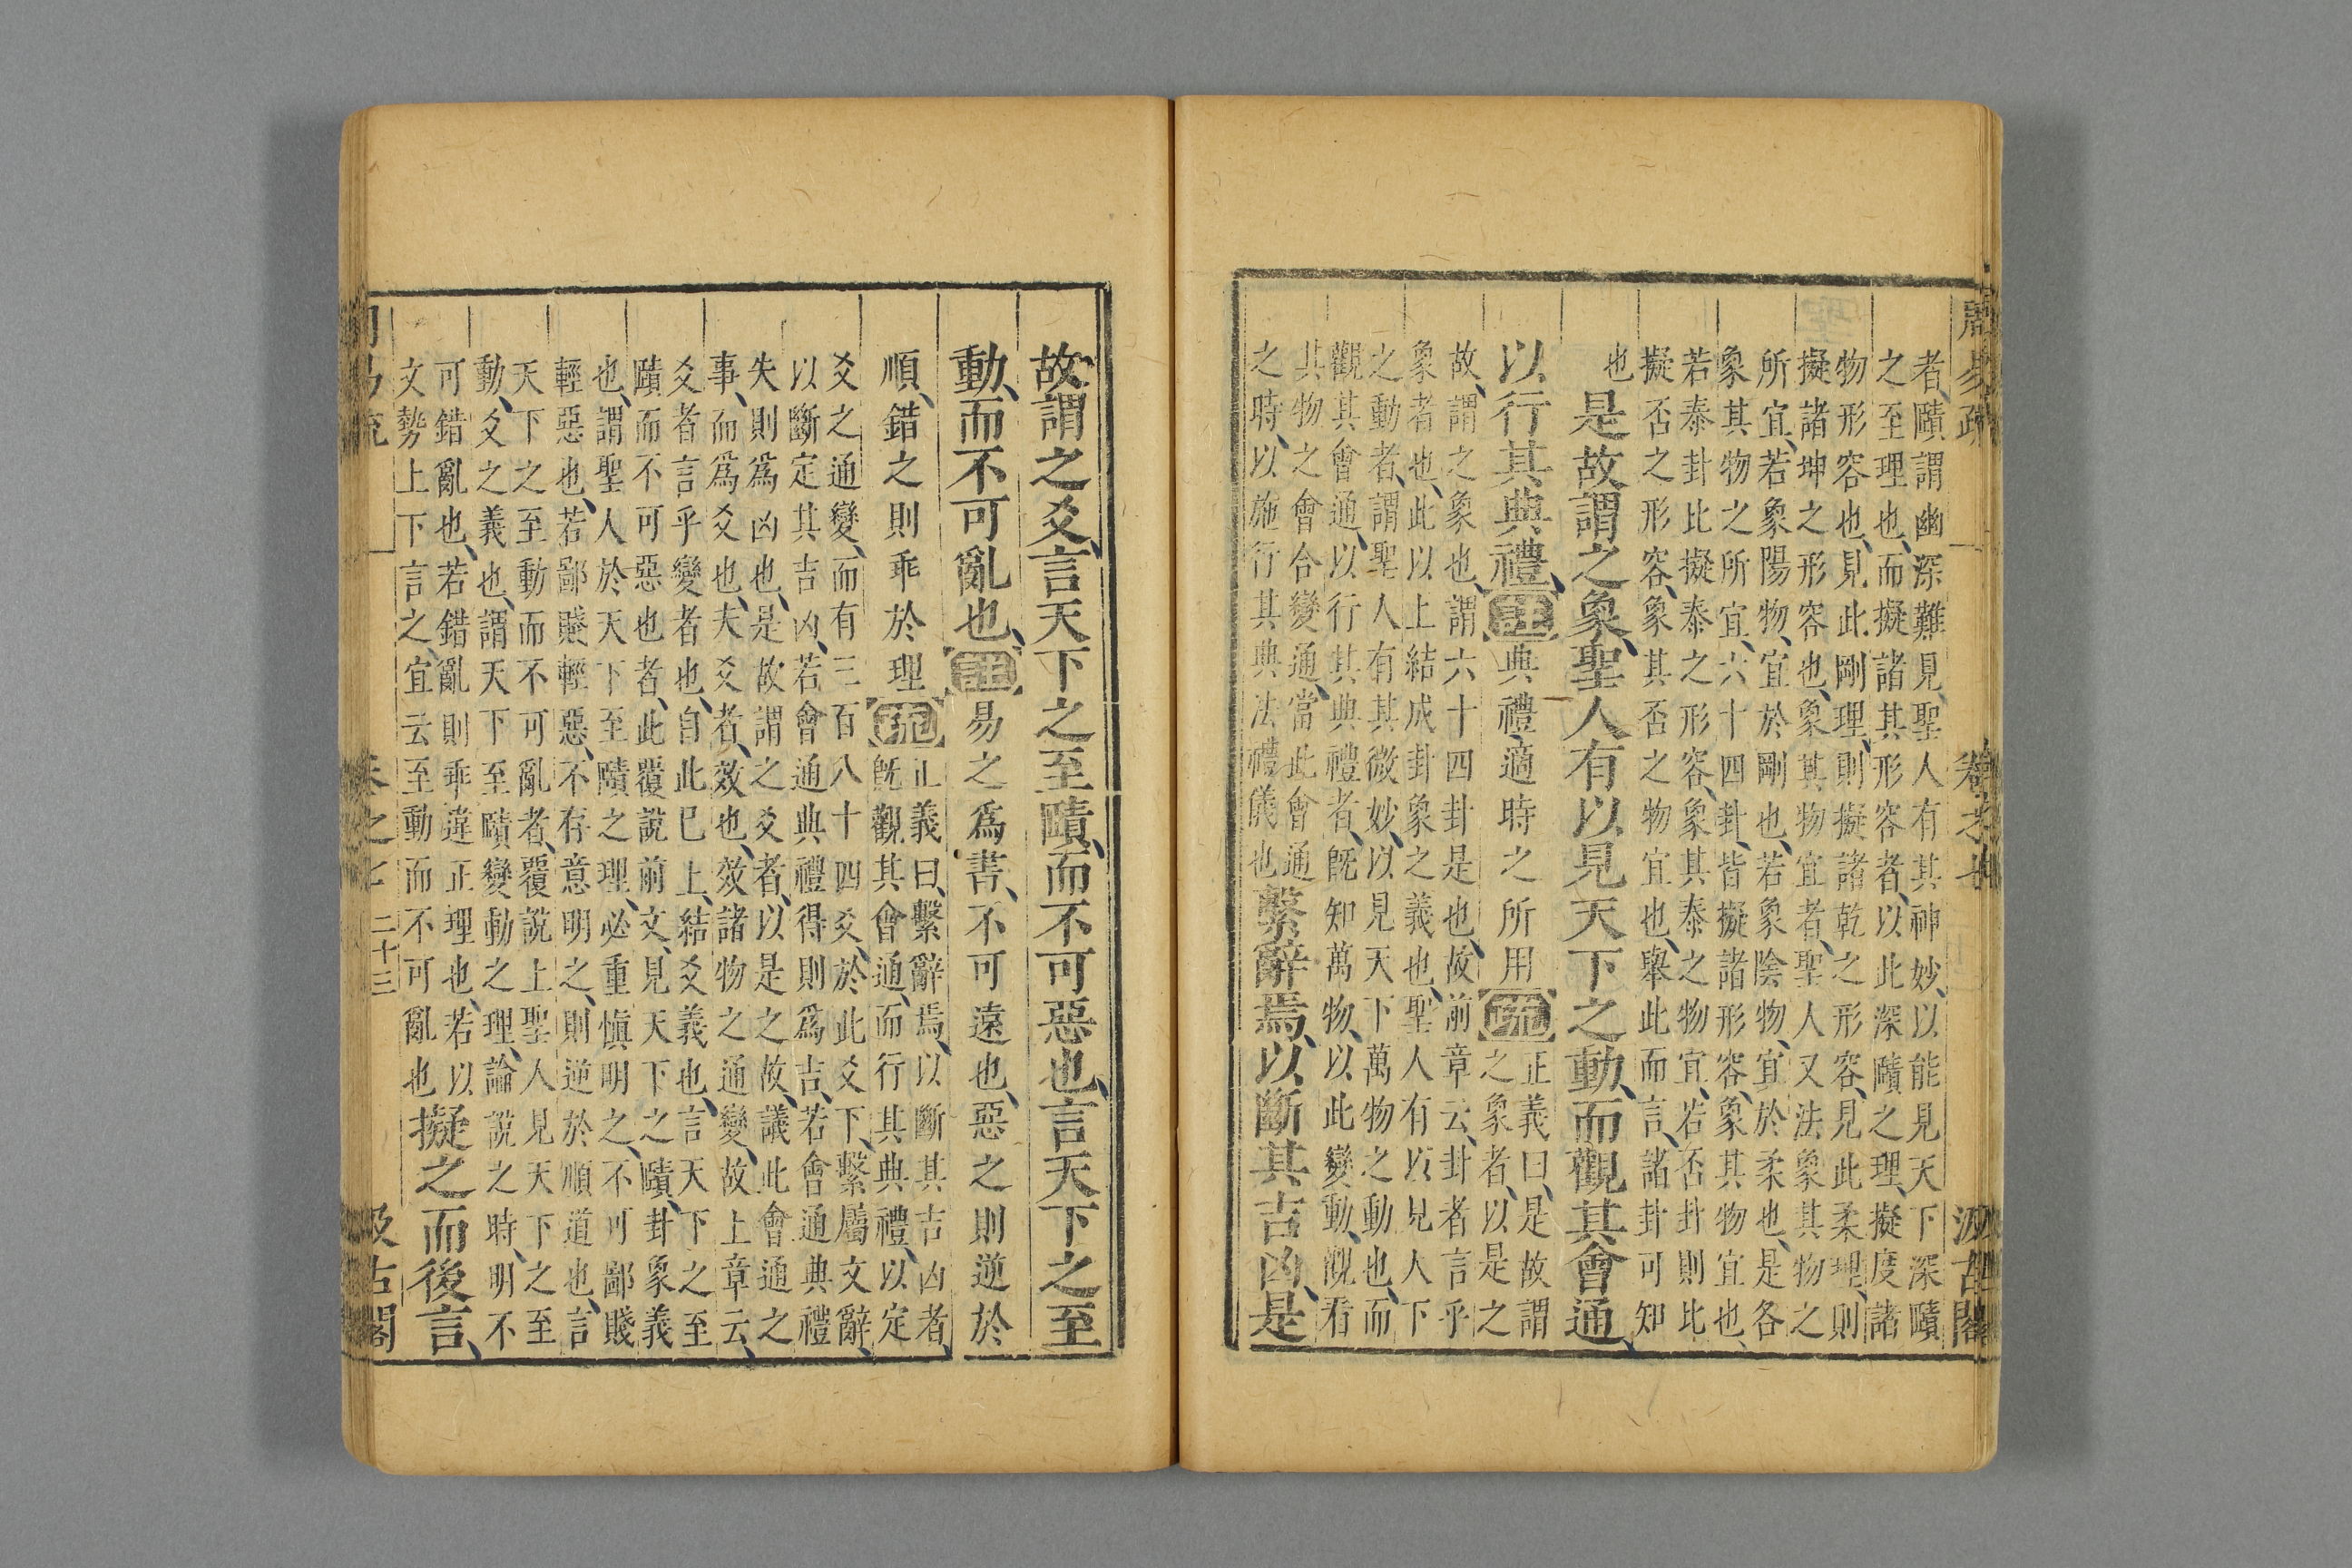 周易疏 卷之七 汲古閣
者賾謂幽深難見聖人有其神妙以能見天下深賾
之至理也而擬諸其形容者以此深賾之理擬度諸
物形容也見此剛理則擬諸乾之形容見此柔理則
擬諸坤之形容也象其物宜者聖人又法象其物之
所宜若象陽物宜於剛也若象陰物宜於柔也是各
象其物之所宜六十四卦皆擬諸形容象其物宜也
若泰卦比擬泰之形容象其泰之物宜若否卦則比
擬否之形容象其否之物宜也舉此而言諸卦可知
也 是故謂之象聖人有以見天下之動而觀其會通
以行其典禮註典禮適時之所用疏正義曰是故謂
之象者以是之
故謂之象也謂六十四卦是也故前章云卦者言乎
象者也此以上結成卦象之義也聖人有以見人下
之動者謂聖人有其微妙以見天下萬物之動也而
觀其會通以行其典禮者旣知萬物以此變動觀看
其物之會合變通當此會通
之時以施行其典法禮儀也繫辭焉以斷其吉凶是
故謂之爻言天下之至賾而不可惡也言天下之至
動而不可亂也註易之爲書不可遠也惡之則逆於
順錯之則乖於理疏正義曰繫辭焉以斷其吉凶者
旣觀其會通而行其典禮以定
爻之通變而有三百八十四爻於此爻下繫屬文辭
以斷定其吉凶若會通典禮得則爲吉若會通典禮
失則爲凶也是故謂之爻者以是之故議此會通之
事而爲爻也夫爻者效也效諸物之通變故上章云
爻者言乎變者也自此已上結爻義也言天下之至
賾而不可惡也者此覆說前文見天下之賾卦象義
也謂聖人於天下至賾之理必重慎明之不可鄙賤
輕惡也若鄙賤輕惡不存意明之則逆於順道也言
天下之至動而不可亂者覆說上聖人見天下之至
動爻之義也謂天下至賾變動之理論說之時明不
可錯亂也若錯亂則乖違正理也若以
文勢上下言之宜云至動而不可亂也擬之而後言
卷之七 二十三 汲古閣